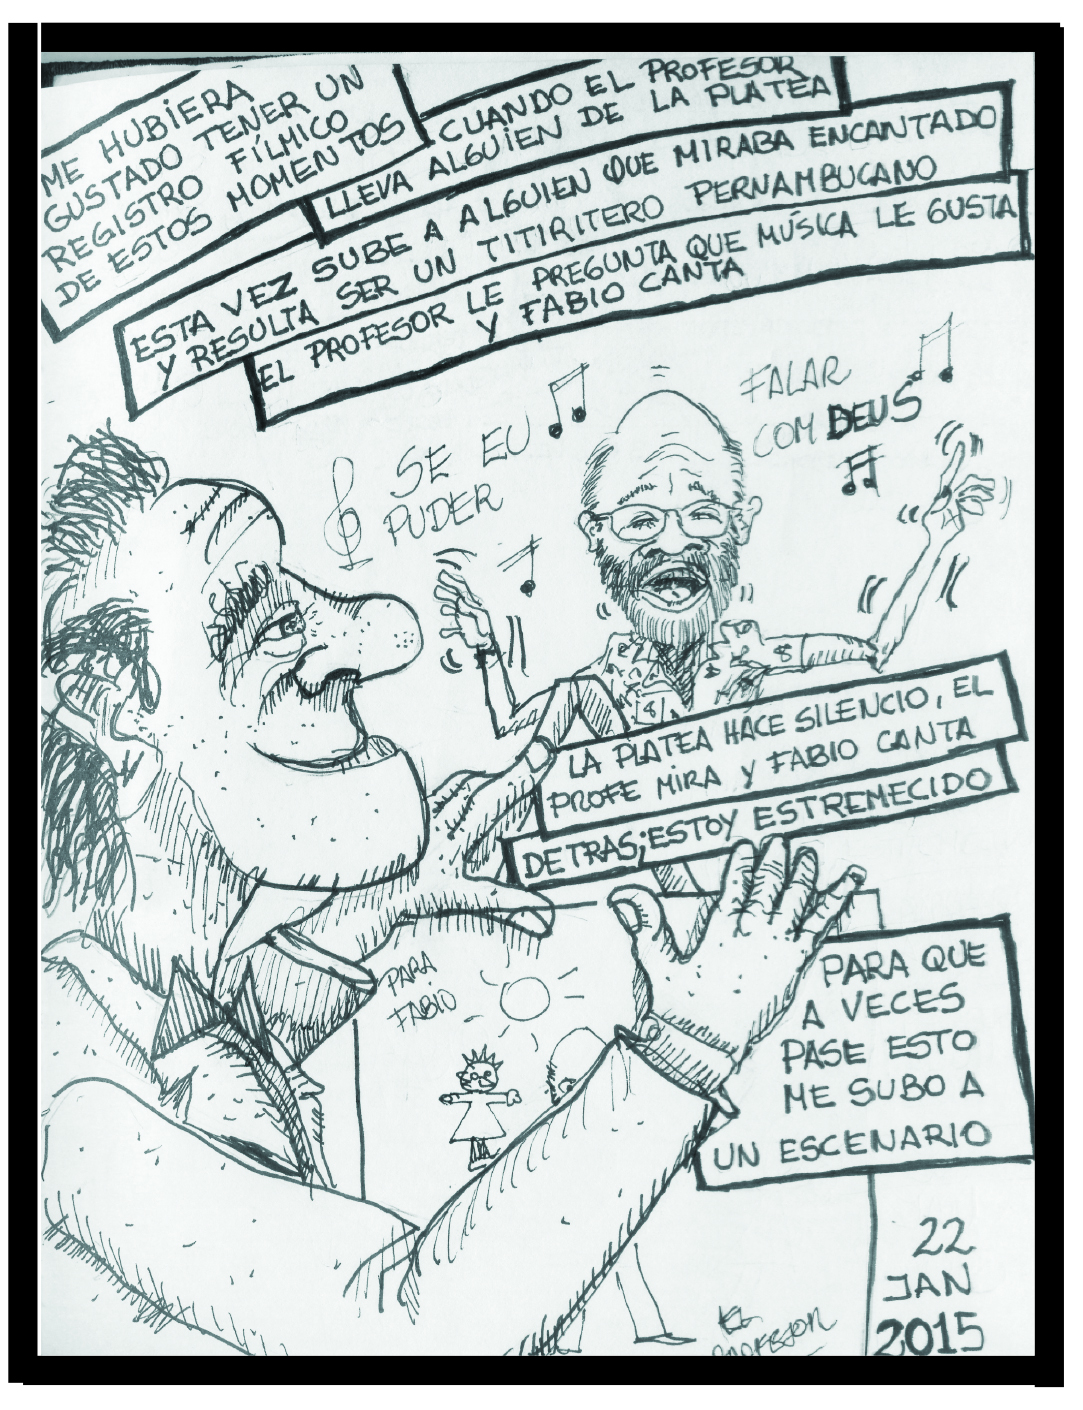 ME HUBIERA
GUSTADO TENER UN
REGISTRO FÍLMICO
DE ESTOS MOMENTOS
CUANDO EL PROFESOR
LLEVA ALGUIEN DE LA PLATEA
ESTA VEZ SUBE A ALGUIEN QUE MIRABA ENCANTADO
Y RESULTA SER UN TITIRITERO PERNAMBUCANO
EL PROFESOR LE PREGUNTA QUE MÚSICA LE GUSTA
Y FABIO CANTA
SE EU
PUDER
FALAR
COM DEUS
LA PLATEA HACE SILENCIO, EL
PROFE MIRA Y FABIO CANTA
DETRAS; ESTOY ESTREMECIDO
PARA
FABIO
PARA QUE
A VECES
PASE ESTO
ME SUBO A
UN ESCENARIO
22
JAN
2015
EL
PROFESSOR